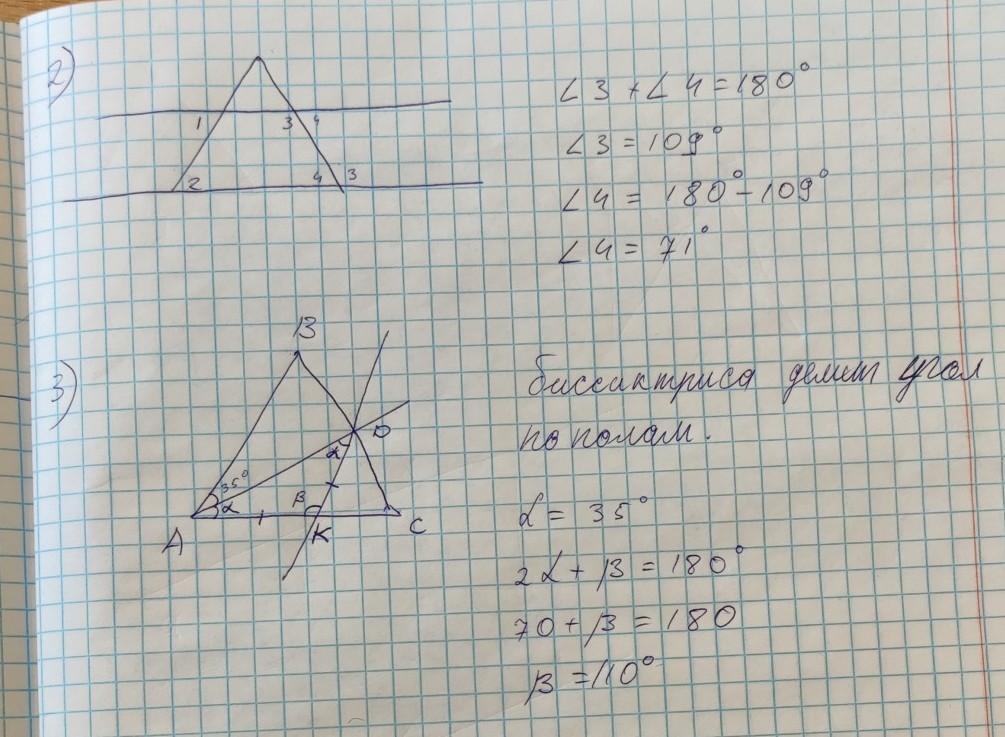 2)
1 3 4
2 4 3
∠3 + ∠4 = 180°
∠3 = 109°
∠4 = 180° - 109°
∠4 = 71°
3)
B
D
35°
α
α
β
A
K
C
биссиктриса делит угол
по полам.
α = 35°
2α + β = 180°
70 + β = 180
β = 110°